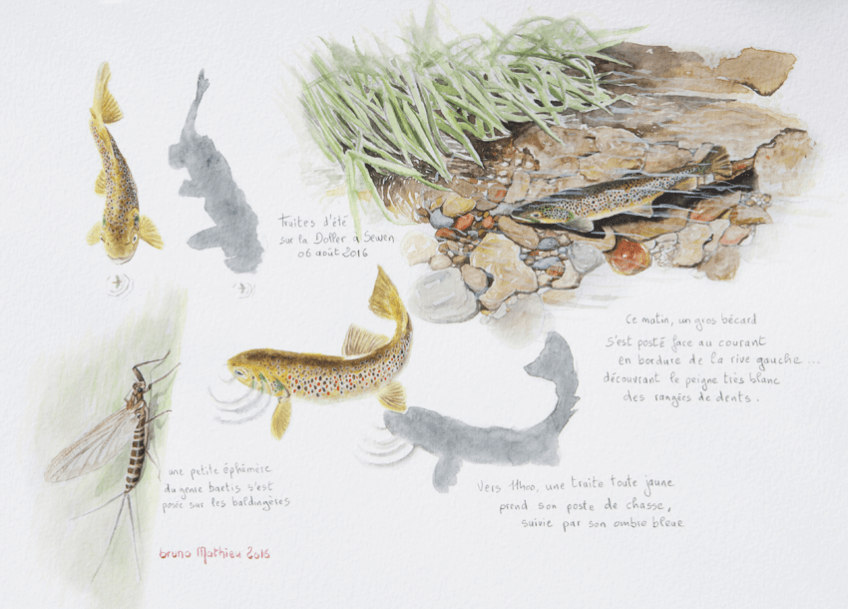 Truites d'été
sur la Doller à Sewen
06 août 2016
Ce matin, un gros bécard
s'est posté face au courant
en bordure de la rive gauche ...
découvrant le peigne très blanc
des rangées de dents.
une petite éphémère
du genre baetis s'est
posée sur les baldingères
Vers 11h00, une truite toute jaune
prend son poste de chasse,
suivie par son ombre bleue
bruno Mathieu 2016